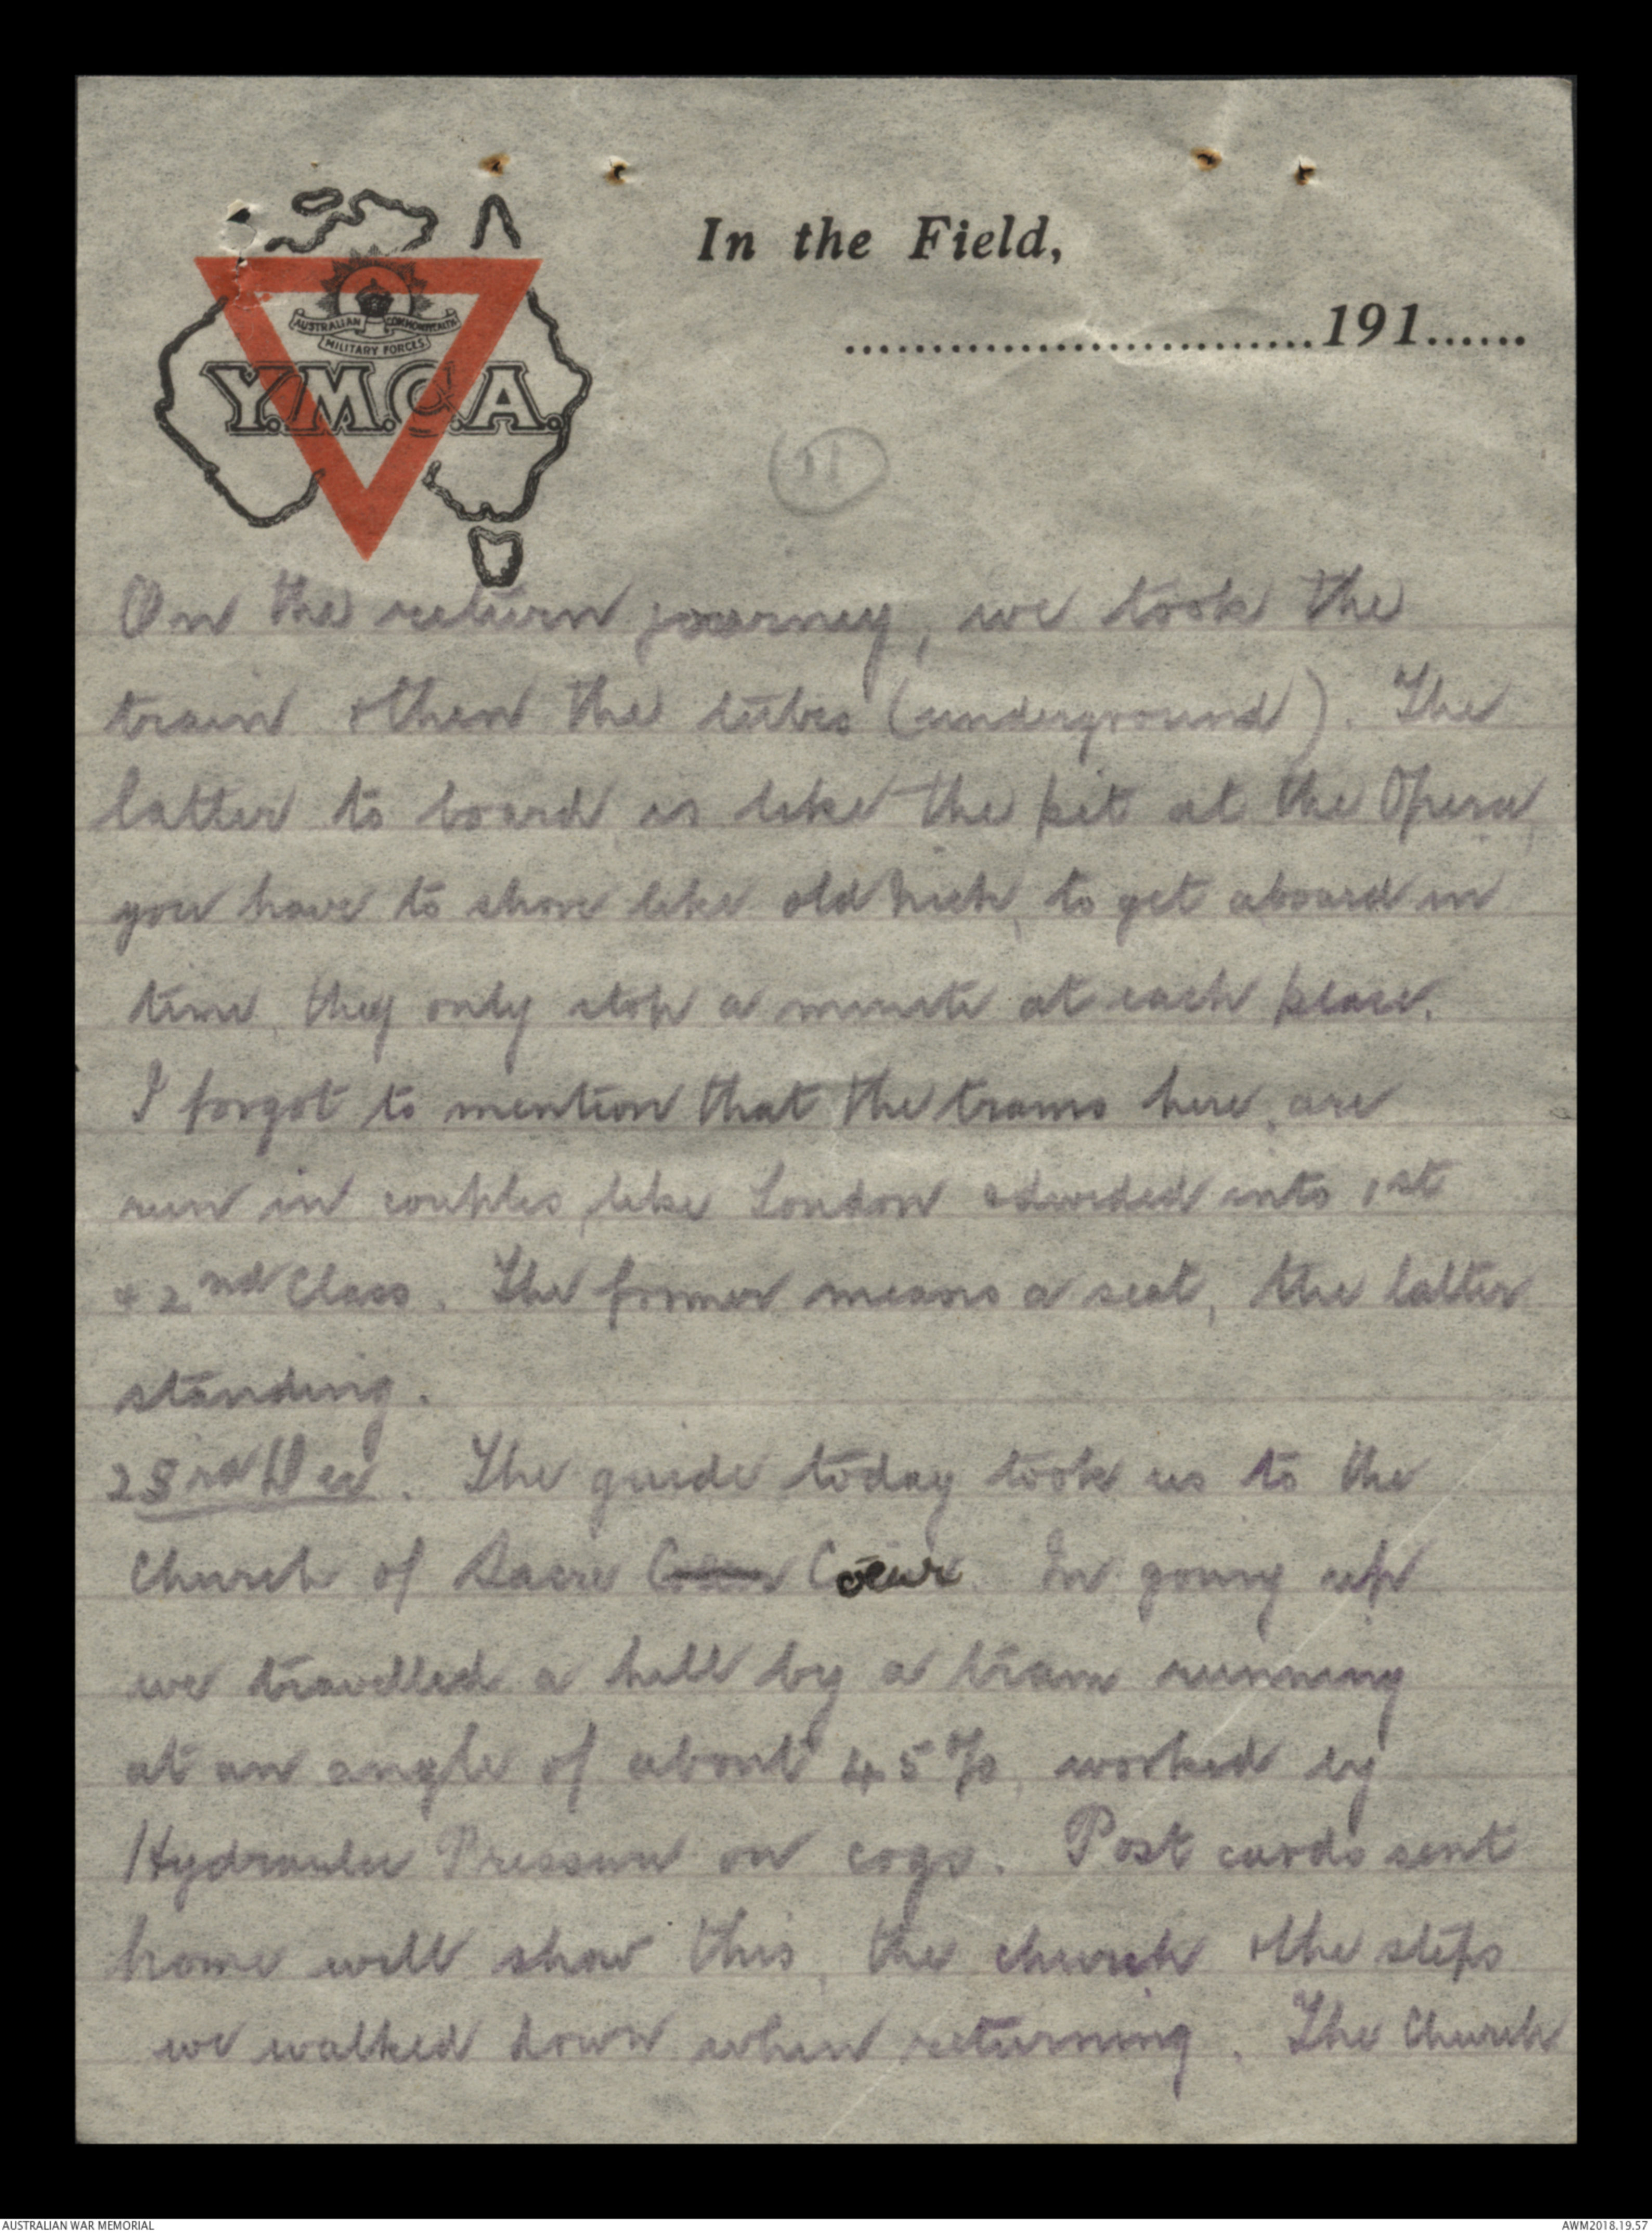 In the Field,
..............................191......
AUSTRALIAN COMMONWEALTH
MILITARY FORCES
Y.M.C.A.
11
On the return journey, we took the
train & then the tubes (underground). The
latter to board is like the pit at the Opera,
you have to shove like old Nick, to get aboard in
time, they only stop a minute at each place.
I forgot to mention that the trams here, are
run in couples, like London & divided into 1st
& 2nd Class. The former means a seat, the latter
standing.
23rd Dec. The guide today took us to the
Church of Sacre Coeur. In going up
we travelled a hill by a tram running
at an angle of about 45%, worked by
Hydraulic Pressure on cogs. Post cards sent
home will show this, the church & the steps
we walked down when returning. The Church
AUSTRALIAN WAR MEMORIAL
AWM2018.19.57